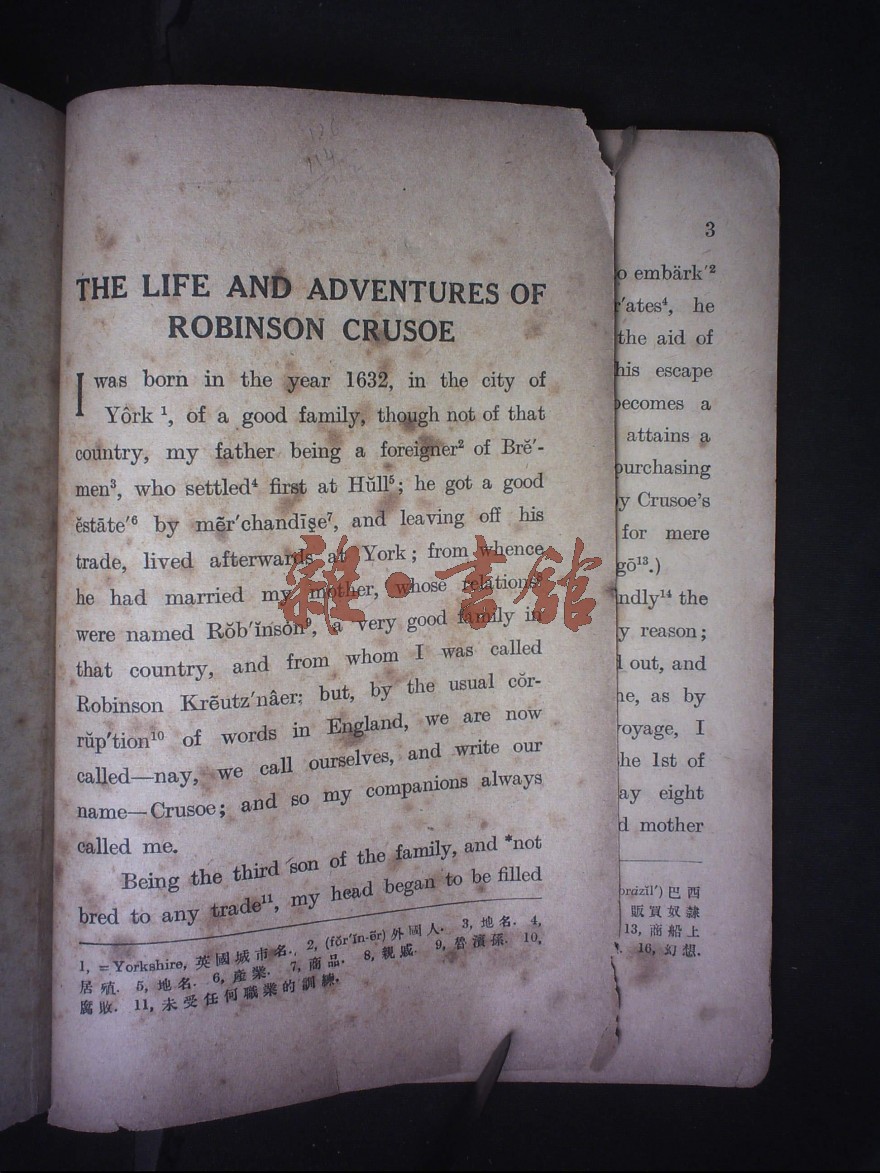 THE LIFE AND ADVENTURES OF
ROBINSON CRUSOE
I was born in the year 1632, in the city of
Yôrk ¹, of a good family, though not of that
country, my father being a foreigner² of Brĕ′-
men³, who settled⁴ first at Hŭll⁵; he got a good
ĕstāte′⁶ by mẽr′chandīşe⁷, and leaving off his
trade, lived afterwards at York; from whence
he had married my mother, whose relations⁸
were named Rŏb′ĭnson⁹, a very good family in
that country, and from whom I was called
Robinson Krẽutz′nâer; but, by the usual cŏr-
rŭp′tion¹⁰ of words in England, we are now
called—nay, we call ourselves, and write our
name—Crusoe; and so my companions always
called me.
Being the third son of the family, and *not
bred to any trade¹¹, my head began to be filled
1, =Yorkshire, 英國城市名. 2, (fŏr′ĭn-ẽr) 外國人. 3, 地名. 4,
居殖. 5, 地名. 6, 產業. 7, 商品. 8, 親戚. 9, 魯濱孫. 10,
腐敗. 11, 未受任何職業的訓練.
3
o embärk′²
r′ates⁴, he
the aid of
his escape
becomes a
attains a
purchasing
y Crusoe's
for mere
gō¹³.)
ndly¹⁴ the
y reason;
l out, and
ne, as by
voyage, I
he 1st of
ay eight
d mother
brazīl′) 巴西
販買奴隸
13, 商船上
16, 幻想.
雜·書館